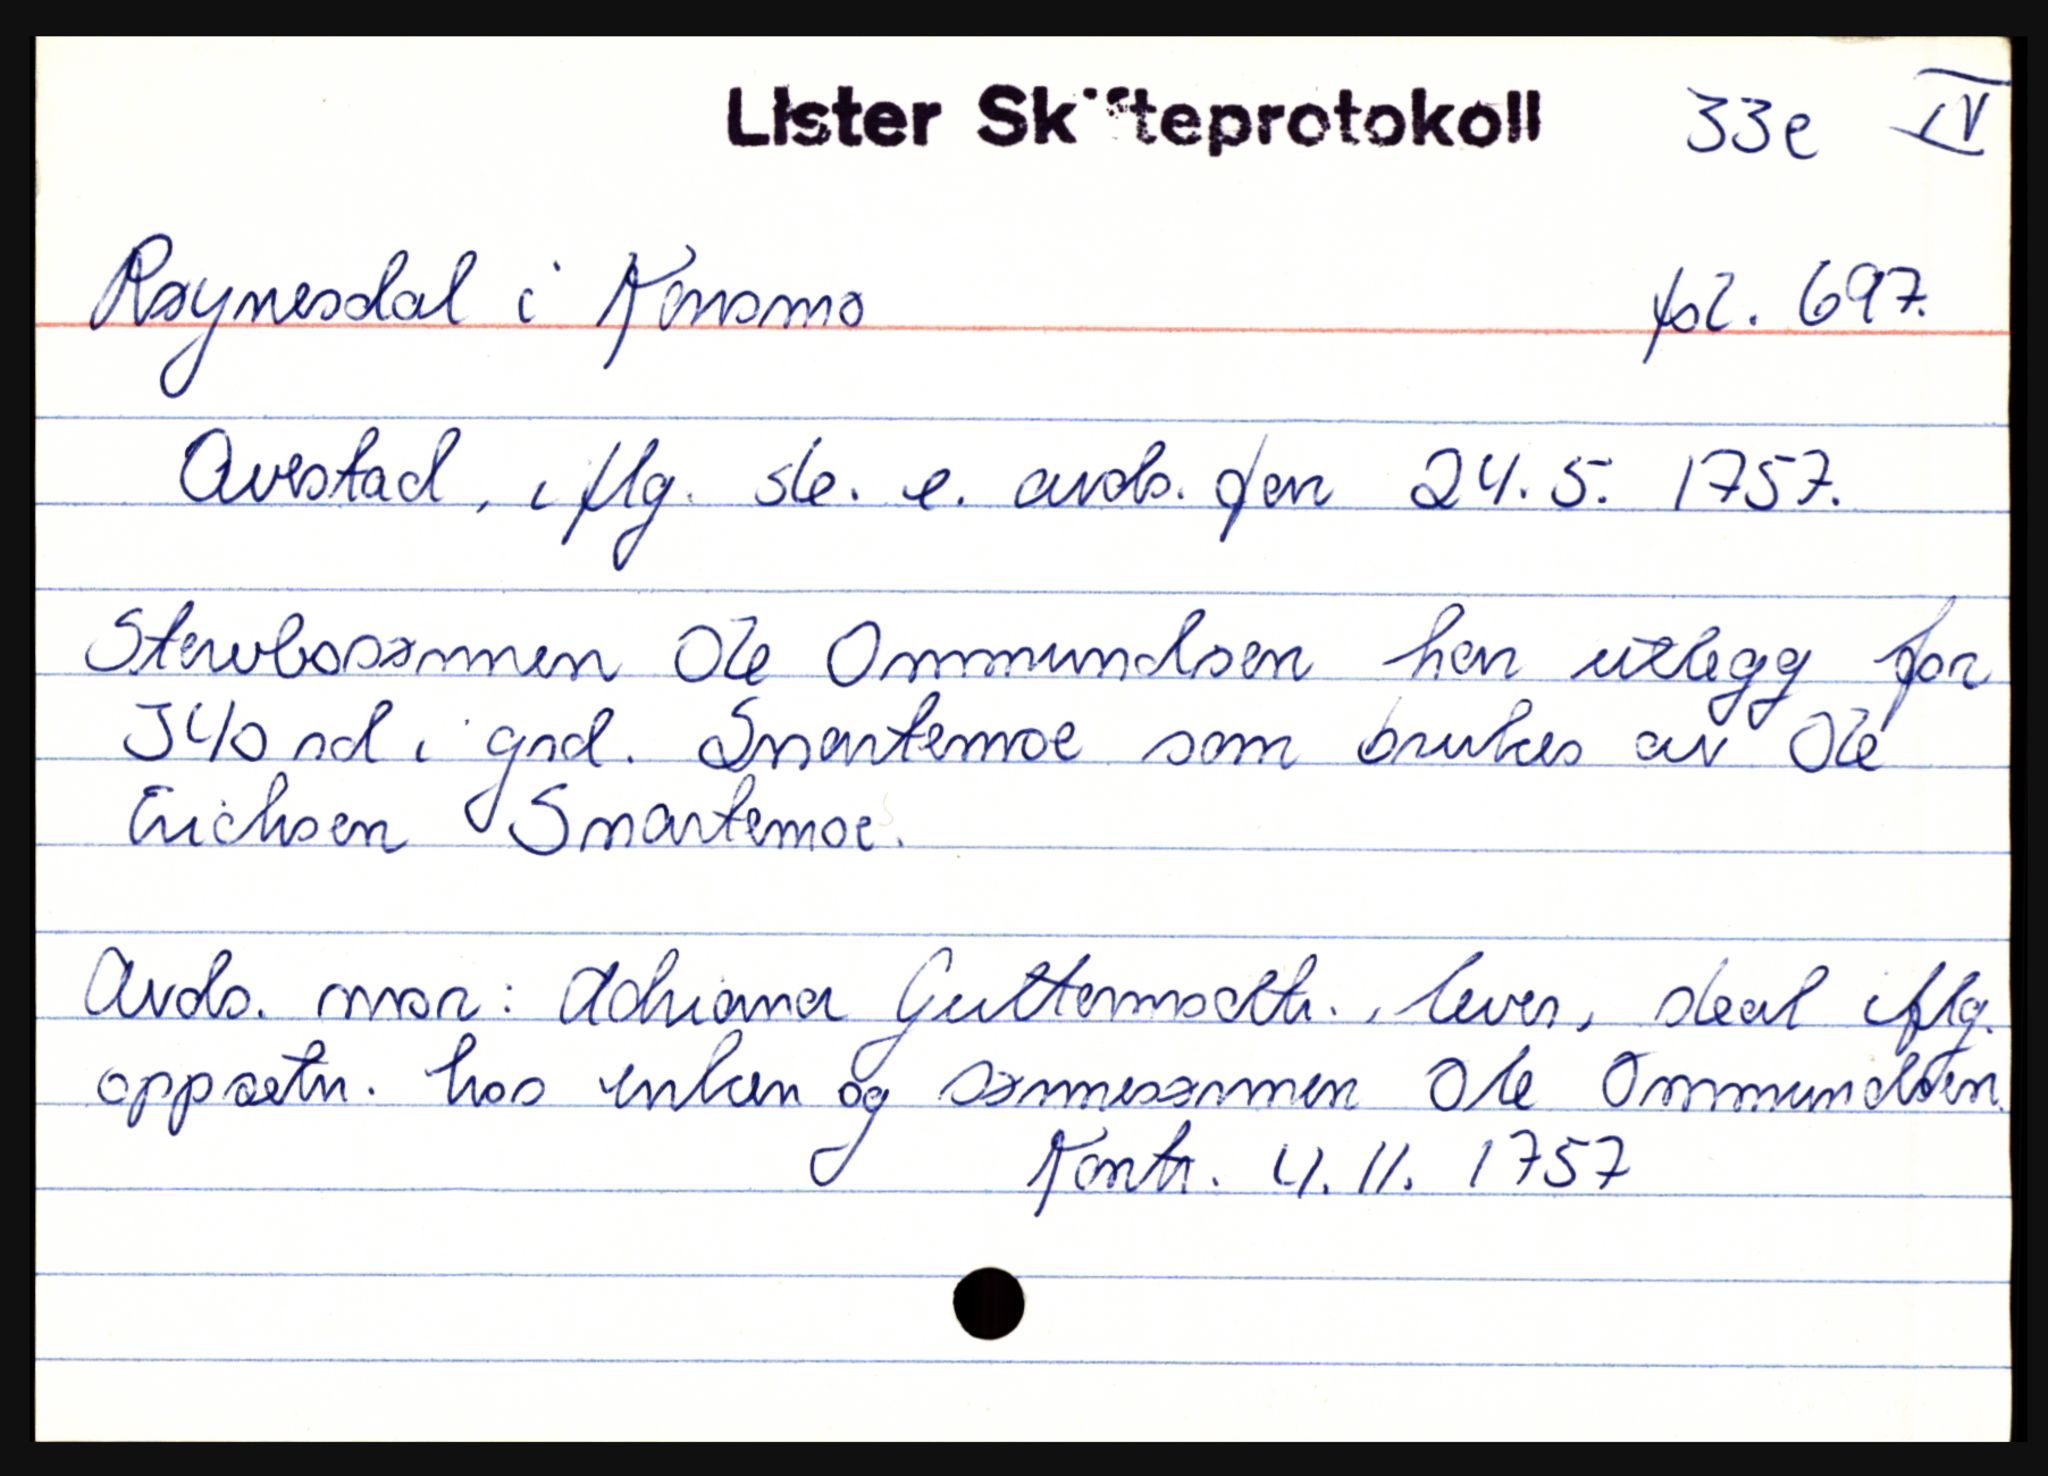 Lister Skifteprotokoll 33e IV
Røynesdal i Konsmo fol. 697.
Avestad, iflg. sk. e. avds. den 24. 5. 1757.
Stervbosønnen Ole Ommundsen har utlegg for
340 rd i grd. Snartemoe som brukes av Ole
Erichsen Snartemoe.
Avds. mor: Adriana Guttormsdtr., lever, skal iflg.
oppsetn. hos enken og sønnesønnen Ole Ommundsen.
Kontr. 4. 11. 1757